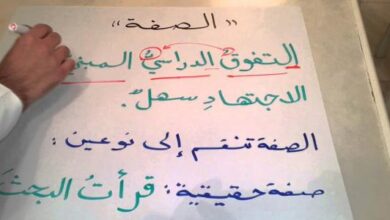 "الصفة"
التفوقُ الدراسيُّ المبني
الاجتهادِ سهلٌ.
الصفة تنقسم إلى نوعين:
صفة حقيقية: قرأتُ البحثَ